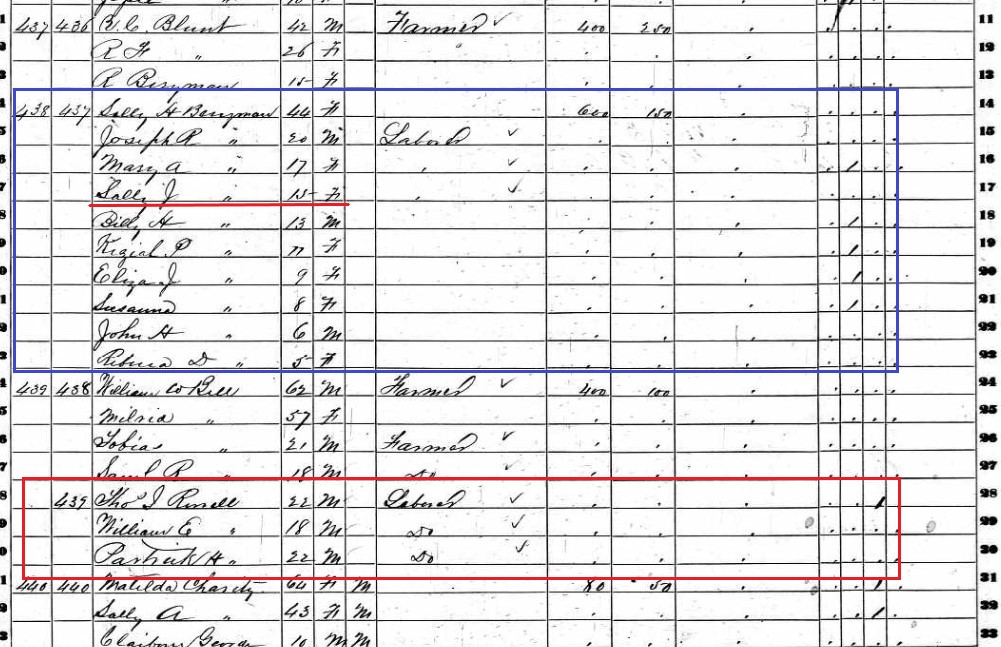 437 436 R. C. Blunt 42 M Farmer 400 250 11
R F " 26 F 12
R Berryman 15 F 13
438 437 Sally H Berryman 44 F 600 150 14
Joseph R " 20 M Laborer 15
Mary A " 17 F 16
Sally J " 15 F 17
Billy H " 13 M 18
Kiziah P " 11 F 19
Eliza J " 9 F 20
Susanna " 8 F 21
John H " 6 M 22
Rebecca D " 5 F 23
439 438 William W Bell 62 M Farmer 400 100 24
" 57 F 25
Tobias " 21 M Farmer 26
Saml R " 18 M Do 27
439 Tho J Russell 22 M Laborer 28
William E " 18 M Do 29
Patrick H " 22 M Do 30
440 440 Matilda Charity 64 F M 80 50 31
Sally A " 43 F M 32
Claiborn George 10 M M 33